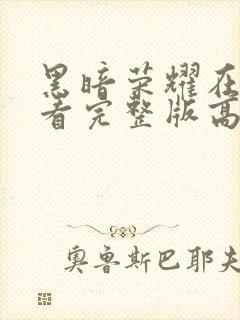 黑暗荣耀在
看完整版高
奥鲁斯巴耶夫